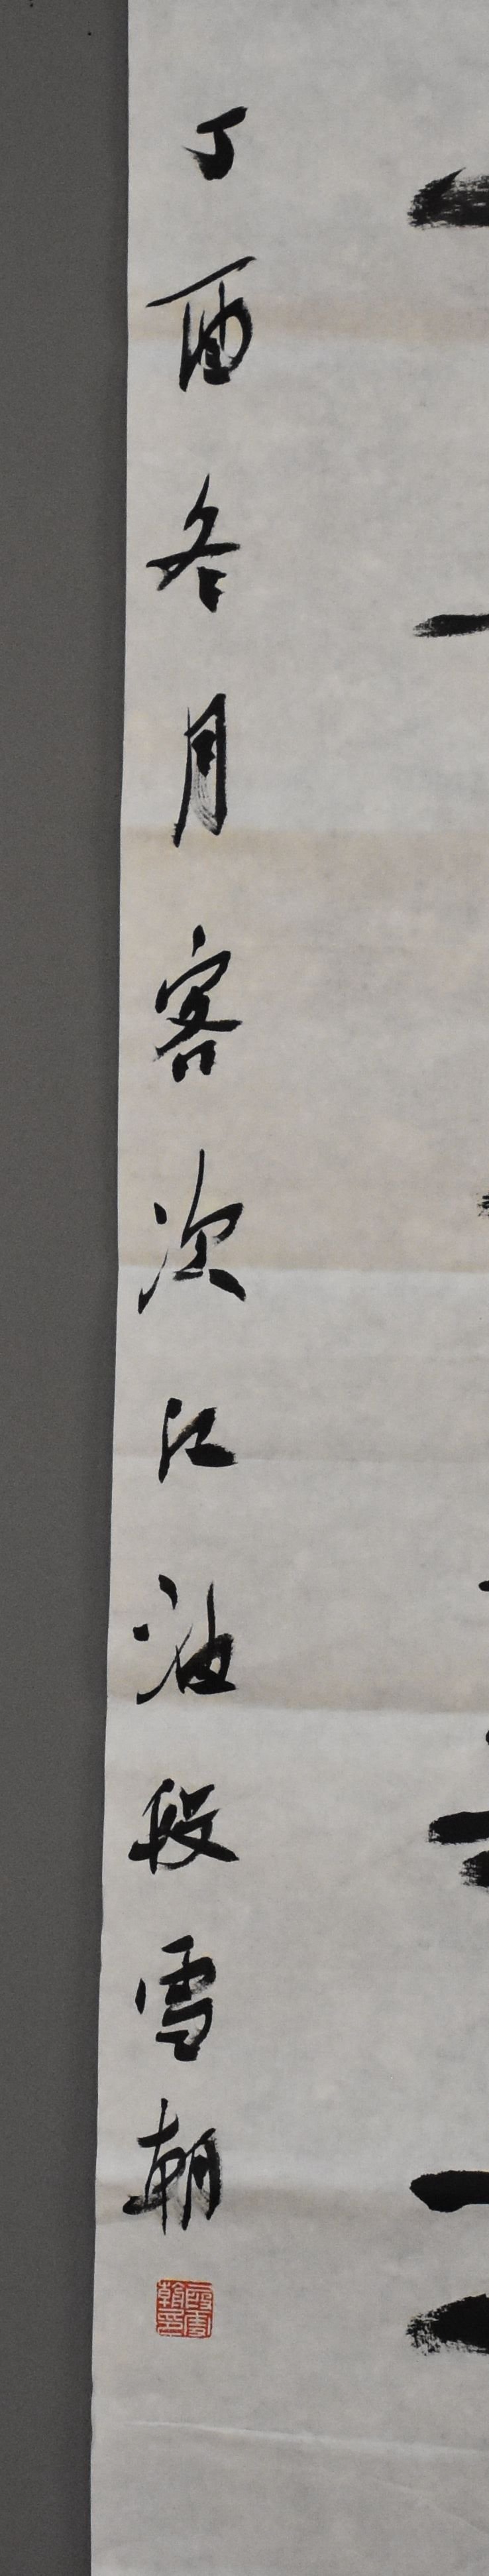 丁酉冬月客次江油段雪朝